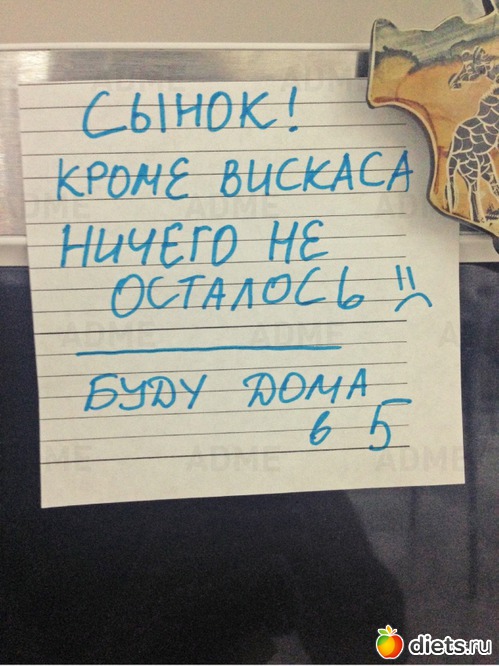 СЫНОК!
КРОМЕ ВИСКАСА
НИЧЕГО НЕ
ОСТАЛОСЬ =(
БУДУ ДОМА
в 5
ADME
ADME
ADME
ADME
ADME
diets.ru